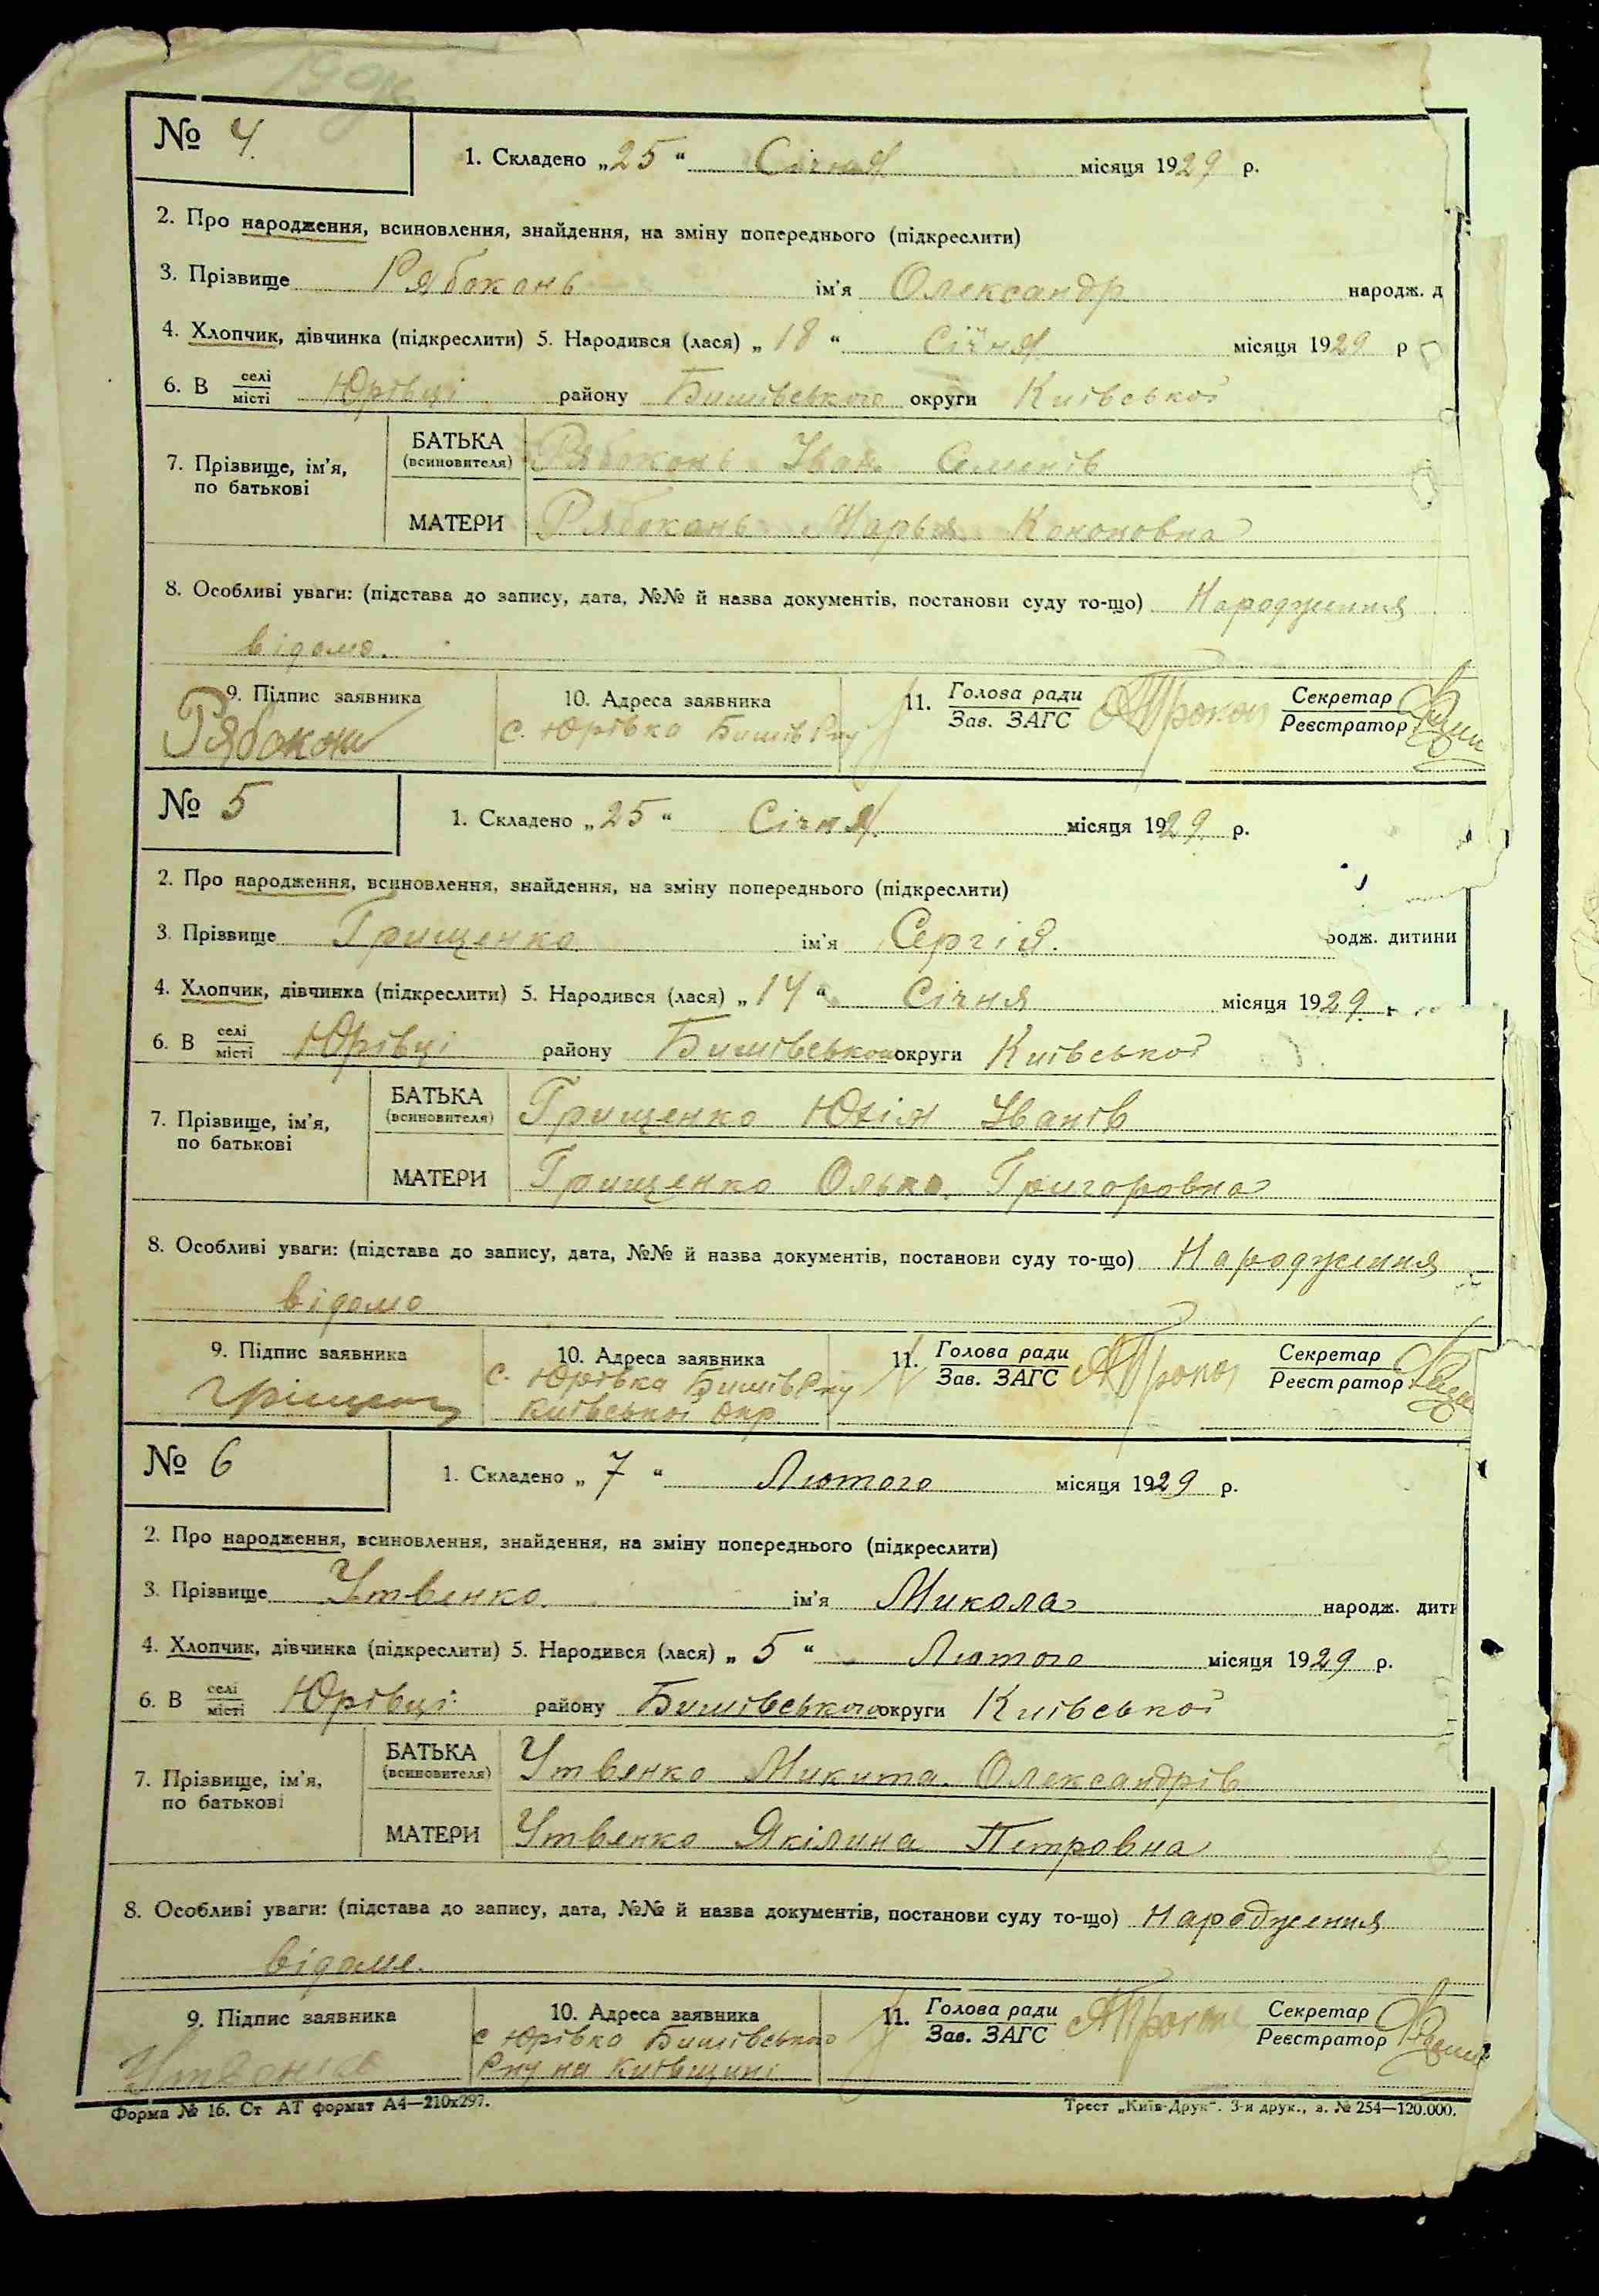 № 4.
1. Складено „25“ Січня місяця 1929 р.
2. Про народження, всиновлення, знайдення, на зміну попереднього (підкреслити)
3. Прізвище Рябоконь ім’я Олександр народж. д
4. Хлопчик, дівчинка (підкреслити) 5. Народився (лася) „18“ Січня місяця 1929 р
6. В селі місті Юрівці району Бишівського округи Київської
7. Прізвище, ім’я, по батькові
БАТЬКА (всиновителя) Рябоконь Іван Семенів
МАТЕРИ Рябоконь Марья Кононовна
8. Особливі уваги: (підстава до запису, дата, №№ й назва документів, постанови суду то-що) Народження
відомо.
9. Підпис заявника 10. Адреса заявника 11. Голова ради Зав. ЗАГС Секретар Реєстратор
Рябокон с. Юрівка Бишів Р-ну
№ 5
1. Складено „25“ Січня місяця 1929 р.
2. Про народження, всиновлення, знайдення, на зміну попереднього (підкреслити)
3. Прізвище Грищенко ім’я Сергій. родж. дитини
4. Хлопчик, дівчинка (підкреслити) 5. Народився (лася) „14“ Січня місяця 1929
6. В селі місті Юрівці району Бишівського округи Київської
7. Прізвище, ім’я, по батькові
БАТЬКА (всиновителя) Грищенко Іванів
МАТЕРИ Грищенко Олька Григоровна
8. Особливі уваги: (підстава до запису, дата, №№ й назва документів, постанови суду то-що) Народження
відомо
9. Підпис заявника 10. Адреса заявника 11. Голова ради Зав. ЗАГС Секретар Реєстратор
с. Юрівка Бишів Р-ну
Київської окр
№ 6
1. Складено „7“ Лютого місяця 1929 р.
2. Про народження, всиновлення, знайдення, на зміну попереднього (підкреслити)
3. Прізвище Утвенко ім’я Микола народж. дити
4. Хлопчик, дівчинка (підкреслити) 5. Народився (лася) „5“ Лютого місяця 1929 р.
6. В селі місті Юрівці району Бишівського округи Київської
7. Прізвище, ім’я, по батькові
БАТЬКА (всиновителя) Утвенко Микита Олександрів
МАТЕРИ Утвенко Якілина Петровна
8. Особливі уваги: (підстава до запису, дата, №№ й назва документів, постанови суду то-що) Народження
відоме.
9. Підпис заявника 10. Адреса заявника 11. Голова ради Зав. ЗАГС Секретар Реєстратор
с Юрівка Бишівського
Р-ну на Київщині
Форма № 16. Ст АТ формат А4—210х297.
Трест „Київ-Друк“. 3-я друк., з. № 254—120.000.